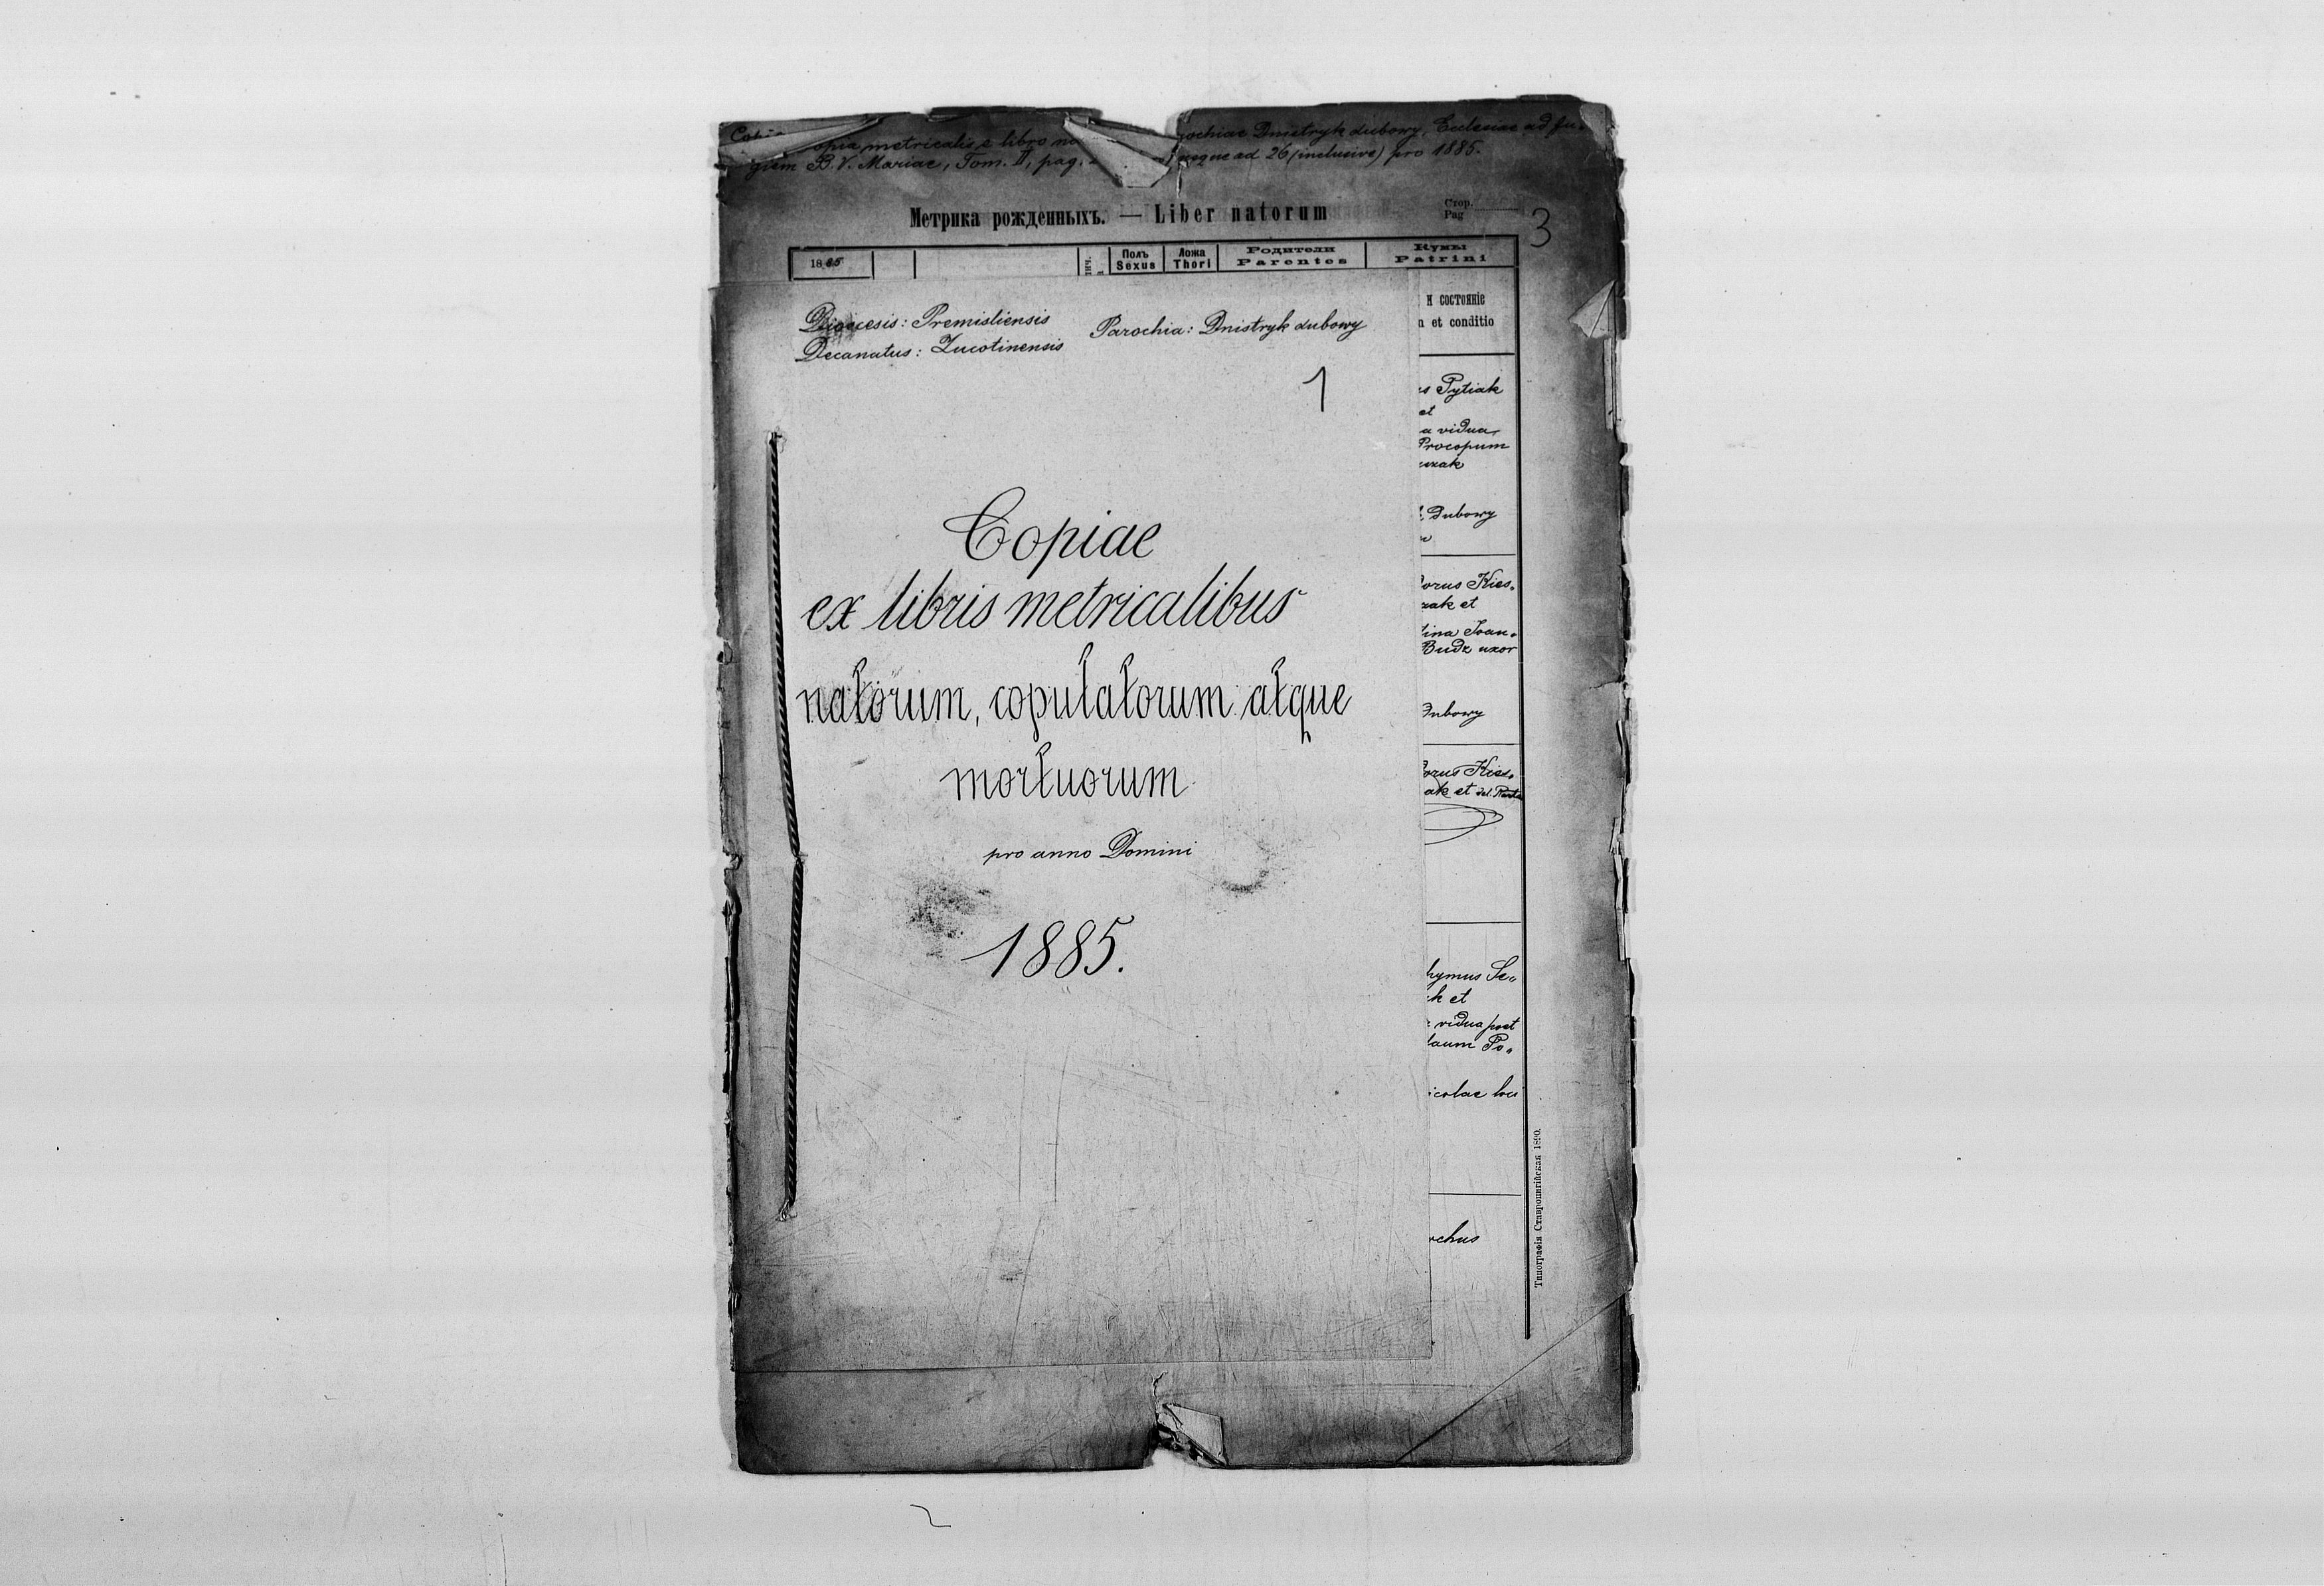 opia metricalis e libro rochiae Dnistryk dubowy, Ecclesiae ad
giem B. V. Mariae, Tom. II, pag. usque ad 26 (inclusive) pro 1885.
Метрика рожденныхъ. — Liber natorum
Стор.
Pag
3
1885
Полъ
Sexus
Ложа
Thori
Родители
Parentes
Кумы
Patrini
Dioecesis: Premisliensis
Decanatus: Zucotinensis
Parochia: Dnistryk dubowy
1
Copiae
ex libris metricalibus
natorum, copulatorum atque
mortuorum
pro anno Domini
1885.
и состоянiе
n et conditio
us Pytiak
et
a vidua
Procopum
czak
Dubowy
orus Kies-
zak et
tina Joan-
Budz uxor
Dubowy
orus Kies-
ak et
hymus Se-
k et
vidua post
laum Po-
icolae loci
rchus
Типографiя Ставропигiйская 1890.